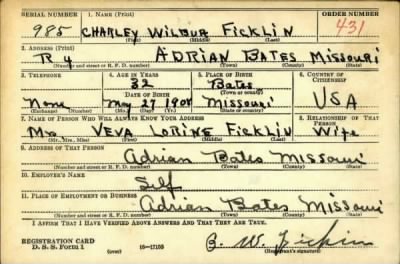 SERIAL NUMBER 1. NAME (Print) ORDER NUMBER
985 CHARLEY WILBUR FICKLIN 431
(First) (Middle) (Last)
2. ADDRESS (Print)
R 4 ADRIAN BATES MISSOURI
(Number and street or R. F. D. number) (Town) (County) (State)
3. TELEPHONE 4. AGE IN YEARS 5. PLACE OF BIRTH 6. COUNTRY OF CITIZENSHIP
32 Bates
DATE OF BIRTH (Town or county)
None May 27 1908 Missouri USA
(Exchange) (Number) (Mo.) (Day) (Yr.) (State or country)
7. NAME OF PERSON WHO WILL ALWAYS KNOW YOUR ADDRESS 8. RELATIONSHIP OF THAT PERSON
Mrs VEVA LORINE FICKLIN Wife
(Mr., Mrs., Miss) (First) (Middle) (Last)
9. ADDRESS OF THAT PERSON
Adrian Bates Missouri
(Number and street or R. F. D. number) (Town) (County) (State)
10. EMPLOYER'S NAME
Self
11. PLACE OF EMPLOYMENT OR BUSINESS
Adrian Bates Missouri
(Number and street or R. F. D. number) (Town) (County) (State)
I AFFIRM THAT I HAVE VERIFIED ABOVE ANSWERS AND THAT THEY ARE TRUE.
REGISTRATION CARD
D. S. S. FORM 1 (over) 16-17105 C. W. Ficklin
(Registrant's signature)